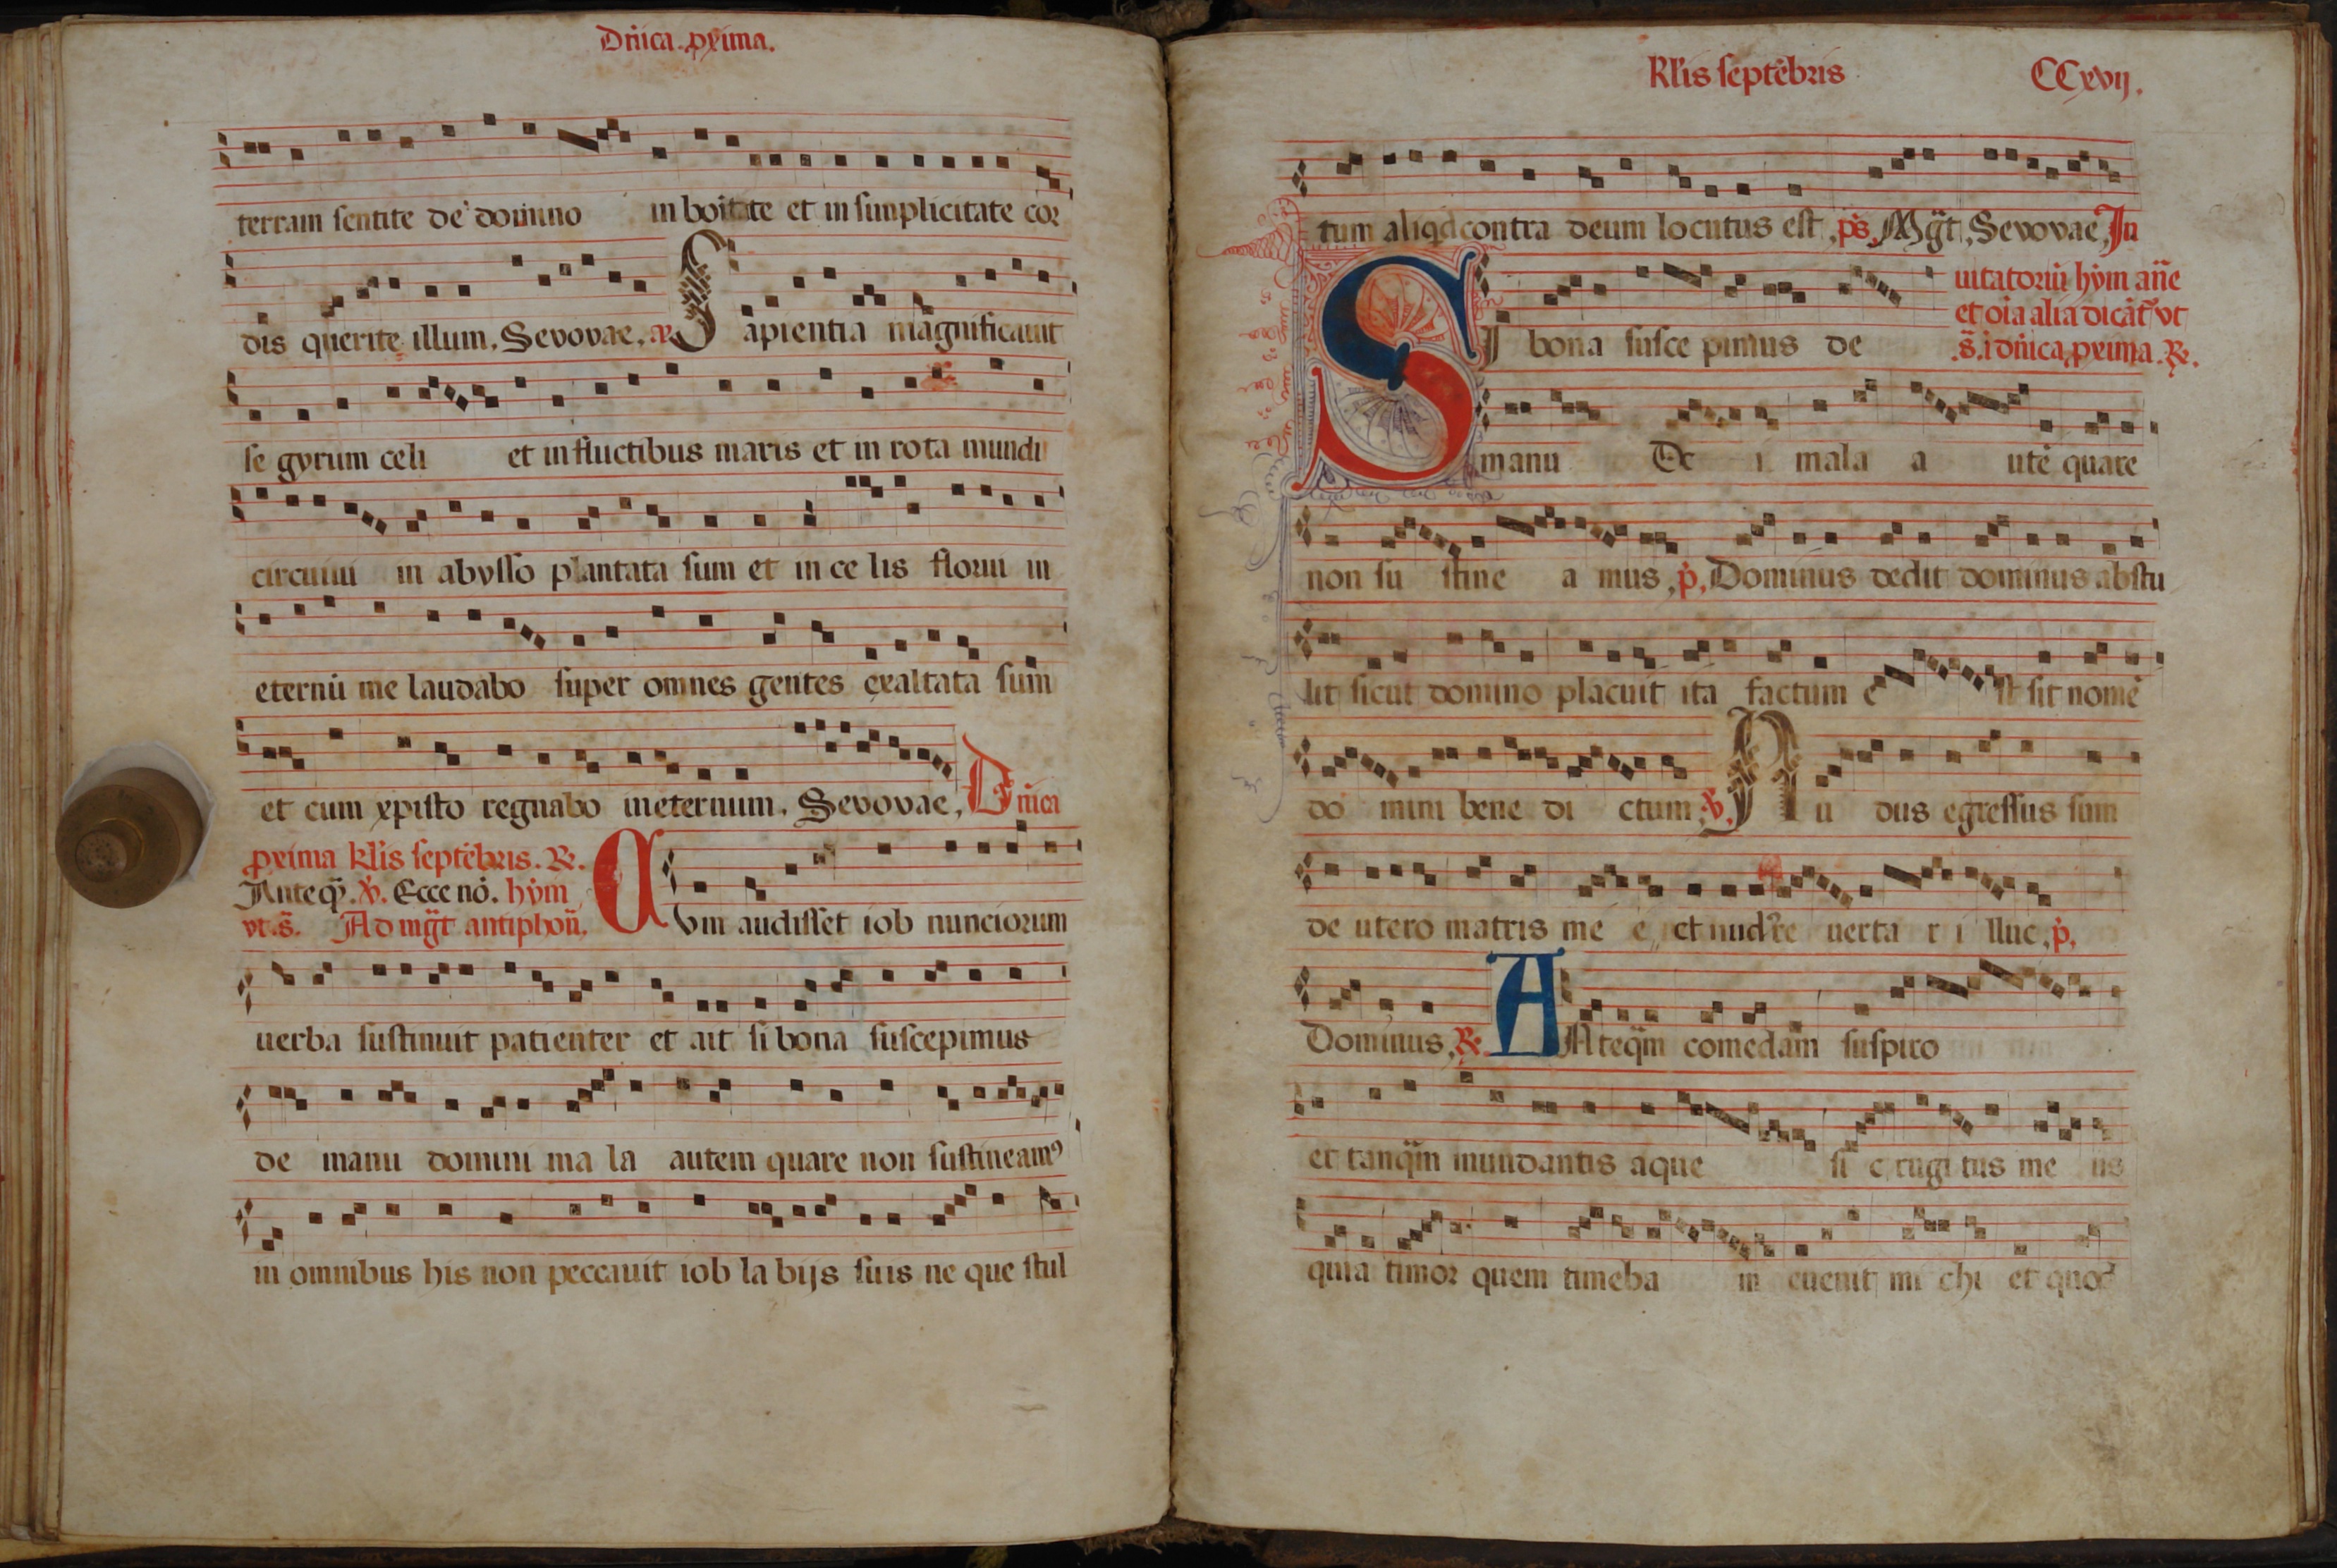 Dnīca. pxima.
terram sentite de domino in boītate et in simplicitate cor
dis querite illum. Sevovae. a Sapientia magnificavit
se gyrum celi et in fluctibus maris et in rota mundi
circuivi in abysso plantata sum et in ce lis florui in
eternū me laudabo super omnes gentes exaltata sum
et cum xpisto regnabo ineternum. Sevovae. Dnīca
pxima klis septēbris. R.
Anteq̄. V. Ecce nō. hym
vt s̄. Ad mḡt antiphoñ.
Cvm audisset iob nunciorum
uerba sustinuit patienter et ait si bona suscepimus
de manu domini ma la autem quare non sustineamꝰ
in omnibus his non peccauit iob la bijs suis ne que stul
Klis septēbris CCxvij.
tum aliqd contra deum locutus est. ps. Mḡt. Sevovae. In
uitatoriū hym añe
et oīa alia dicāt vt
.s̄. ī dnīca pxima. R.
SI bona susce pimus de
manu De i mala a utē quare
non su stine a mus. p. Dominus dedit dominus abstu
lit sicut domino placuit ita factum e st sit nomē
do mini bene di ctum. V. Nu dus egressus sum
de utero matris me e et nudꝰ re uerta r i lluc. p.
Dominus. R. ANteq̄m comedam suspiro
et tanq̄m inundantis aque si c rugi tus me us
quia timor quem timeba m euenit mi chi et quod